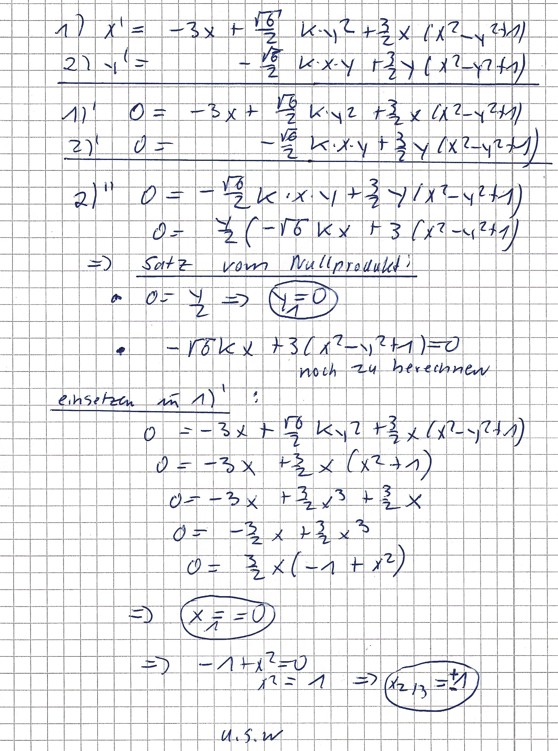 1) x' = -3x + √6/2 k·y² + 3/2 x (x²-y²+1)
2) y' = - √6/2 k·x·y + 3/2 y (x²-y²+1)
1)' 0 = -3x + √6/2 k·y² + 3/2 x (x²-y²+1)
2)' 0 = - √6/2 k·x·y + 3/2 y (x²-y²+1)
2)'' 0 = - √6/2 k·x·y + 3/2 y (x²-y²+1)
0 = y/2 (-√6 kx + 3 (x²-y²+1)
=> Satz vom Nullprodukt:
• 0 = y/2 => y₁=0
• -√6kx + 3(x²-y²+1)=0
noch zu berechnen
einsetzen in 1)' :
0 = -3x + √6/2 ky² + 3/2 x (x²-y²+1)
0 = -3x + 3/2 x (x²+1)
0 = -3x + 3/2 x³ + 3/2 x
0 = -3/2 x + 3/2 x³
0 = 3/2 x (-1 + x²)
=> x₁ = = 0
=> -1+x²=0
x² = 1 => x₂/₃ = ±1
u.s.w